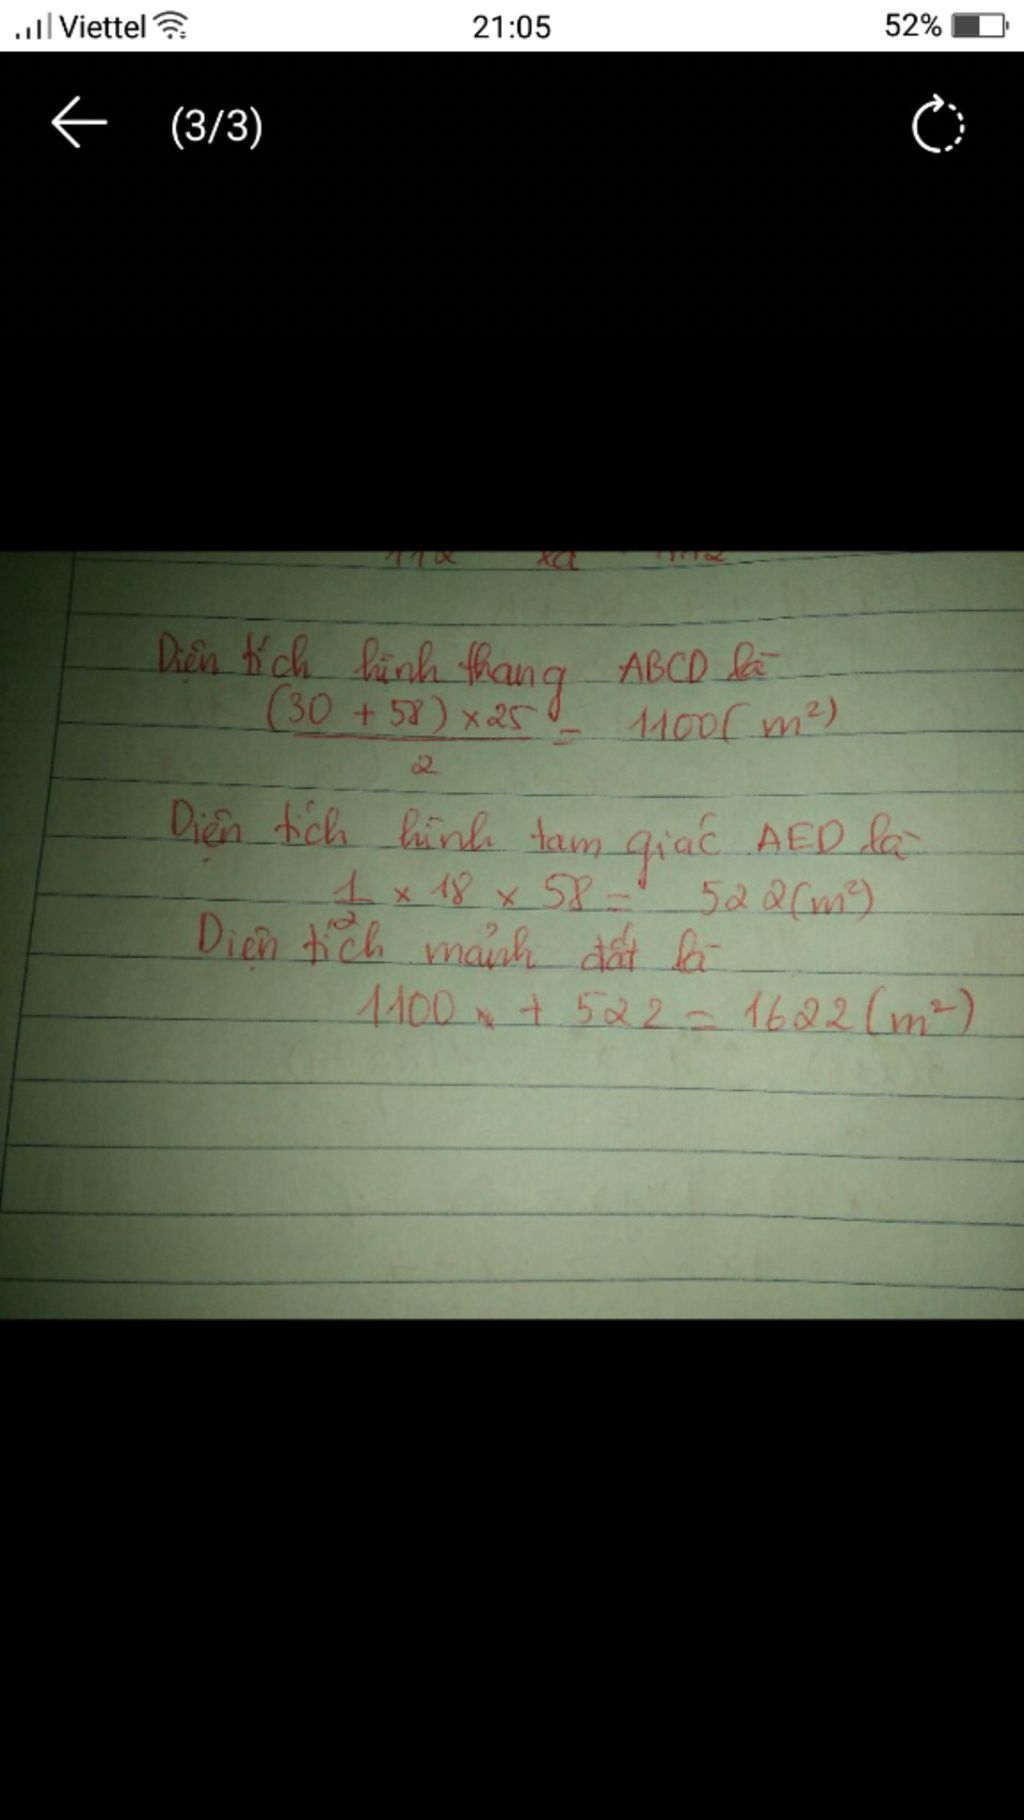 Viettel 21:05 52%
(3/3)
Diện tích hình thang ABCD là
(30 + 58) × 25 = 1100 (m²)
2
Diện tích hình tam giác AED là
1 × 18 × 58 = 522 (m²)
2
Diện tích mảnh đất là
1100 + 522 = 1622 (m²)